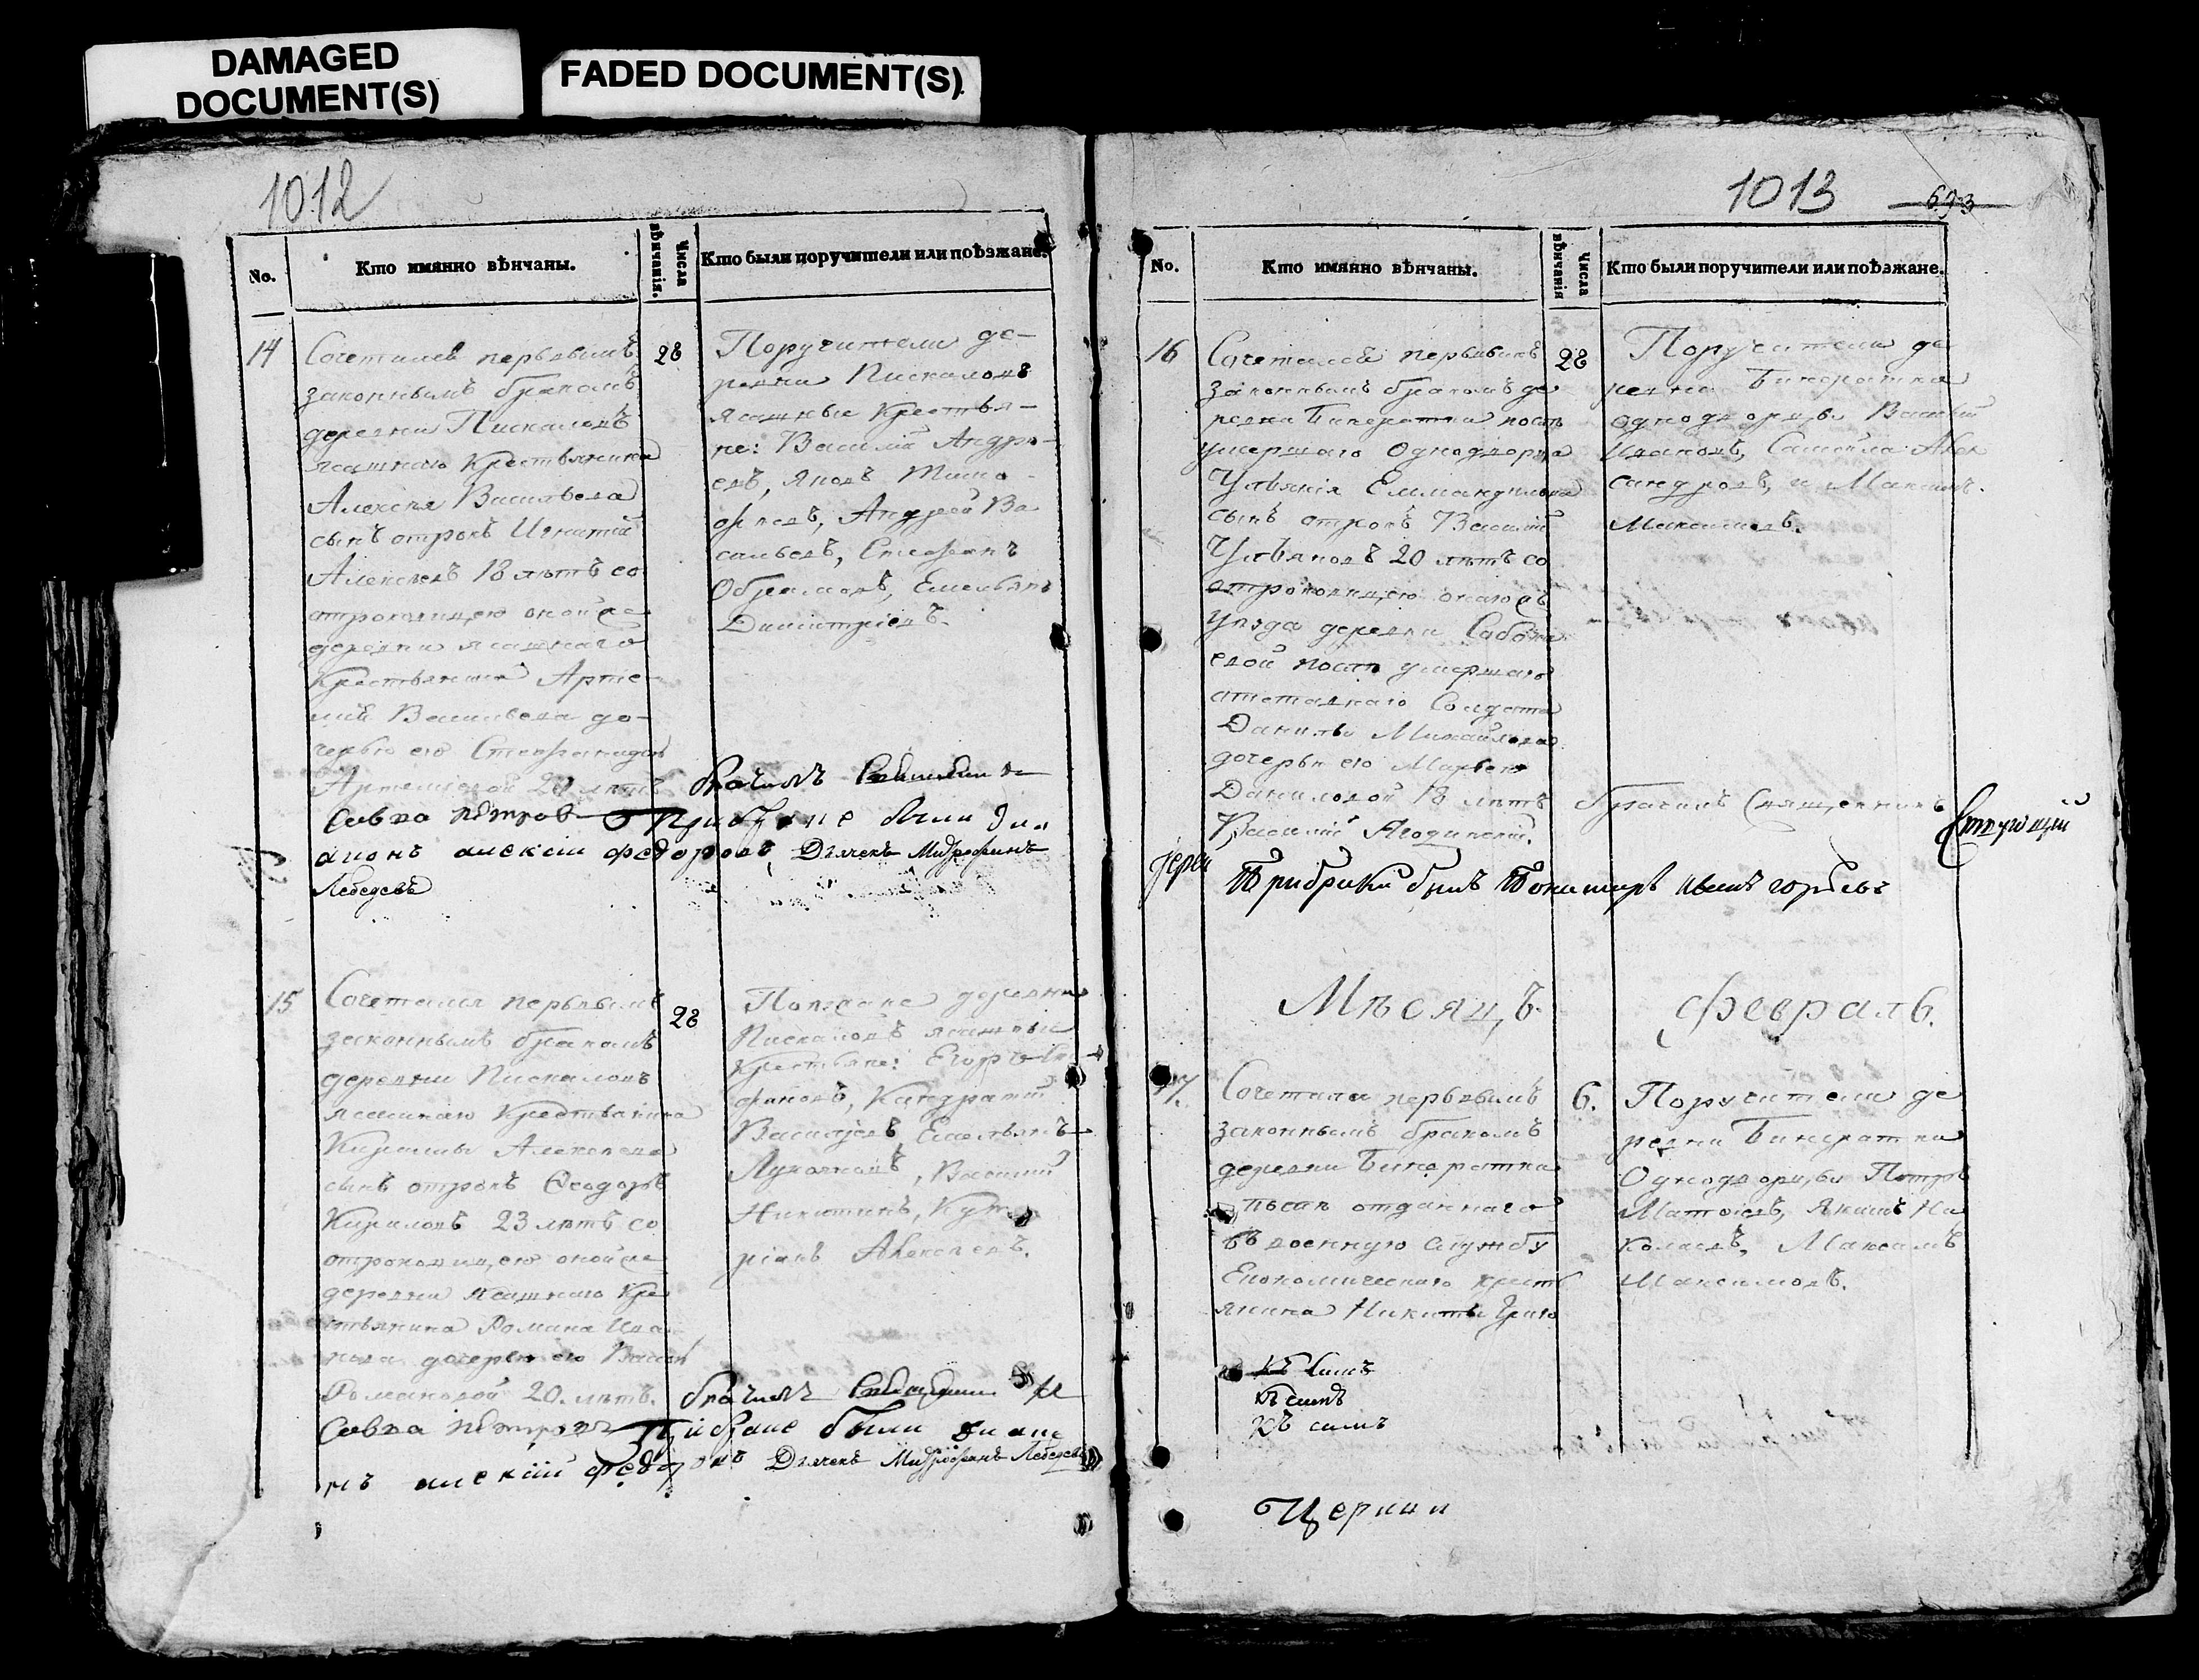 DAMAGED
DOCUMENT(S)
FADED DOCUMENT(S)
1012
No.
Кто имянно вѣнчаны.
Числа
вѣнчанія.
Кто были поручители или поѣзжане.
14
Сочетался первымъ
законнымъ бракомъ
деревни Пискаловъ
ясашнаго крестьянина
Алексѣя Васильева
сынъ отрокъ Игнатій
Алексѣевъ 18 лѣтъ со
отроковицею оной же
деревни ясашнаго
крестьянина Арте
мія Васильева до-
черью его Степанидой
Артемьевой 20 лѣтъ
28
Поручители де-
ревни Пискаловъ
ясашные крестья-
не: Василій Андре-
евъ, Яковъ Тимо
фѣевъ, Андрей Ва
сильевъ, Степанъ
Обрамовъ, Емельянъ
Димитріевъ.
брачилъ
Савва Петровъ При браке были диа
конъ алексіи федоровъ, Дьячекъ Митрофанъ
Лебедевъ
15
Сочетался первымъ
законнымъ бракомъ
деревни Пискаловъ
ясашнаго крестьянина
Кирилы Алексѣева
сынъ отрокъ Феодоръ
Кириловъ 23 лѣтъ со
отроковицею оной же
деревни ясашнаго кре
стьянина Романа Ива
нова дочерью его
Романовой 20. лѣтъ.
28
Поезжане деревни
Пискаловъ ясашные
крестьяне: Егоръ
фановъ, Кандратій
Васильевъ, Емельянъ
, Василій
Никитинъ,
ріанъ Алексѣевъ.
брачилъ
Савва Петровъ При браке были диако
нъ алексіи федоровъ Дьячекъ Митрофанъ Лебедевъ
1013
693
No.
Кто имянно вѣнчаны.
Числа
вѣнчанія
Кто были поручители или поѣзжане.
16
Сочетался первымъ
законнымъ бракомъ де
ревни послѣ
умершаго Однодворца
Ульянія Еммануилова
сынъ отрокъ Василій
Ульяновъ 20 лѣтъ со
отроковицею онаго же
уѣзда деревни
евой послѣ умершаго
отставнаго Солдата
Данилы Михайлова
дочерью его Марьею
Даниловой 18 лѣтъ
28
Поручители де
ревни
однодворцы Василій
Ивановъ, Самойла Алек
сандровъ, и Максимъ
Максимовъ.
брачилъ Священникъ
Іерей Василій
При браки былъ Понамарь
Мѣсяцъ Февраль.
17.
Сочетался первымъ
законнымъ бракомъ
деревни
послѣ отданнаго
въ военную службу
Економическаго кресть
янина Никиты Григо
6.
Поручители де
ревни
Однодворцы Петръ
Матвѣевъ, Якимъ Ни
колаевъ, Максимъ
Максимовъ.
къ симъ
къ симъ
къ симъ
Церкви